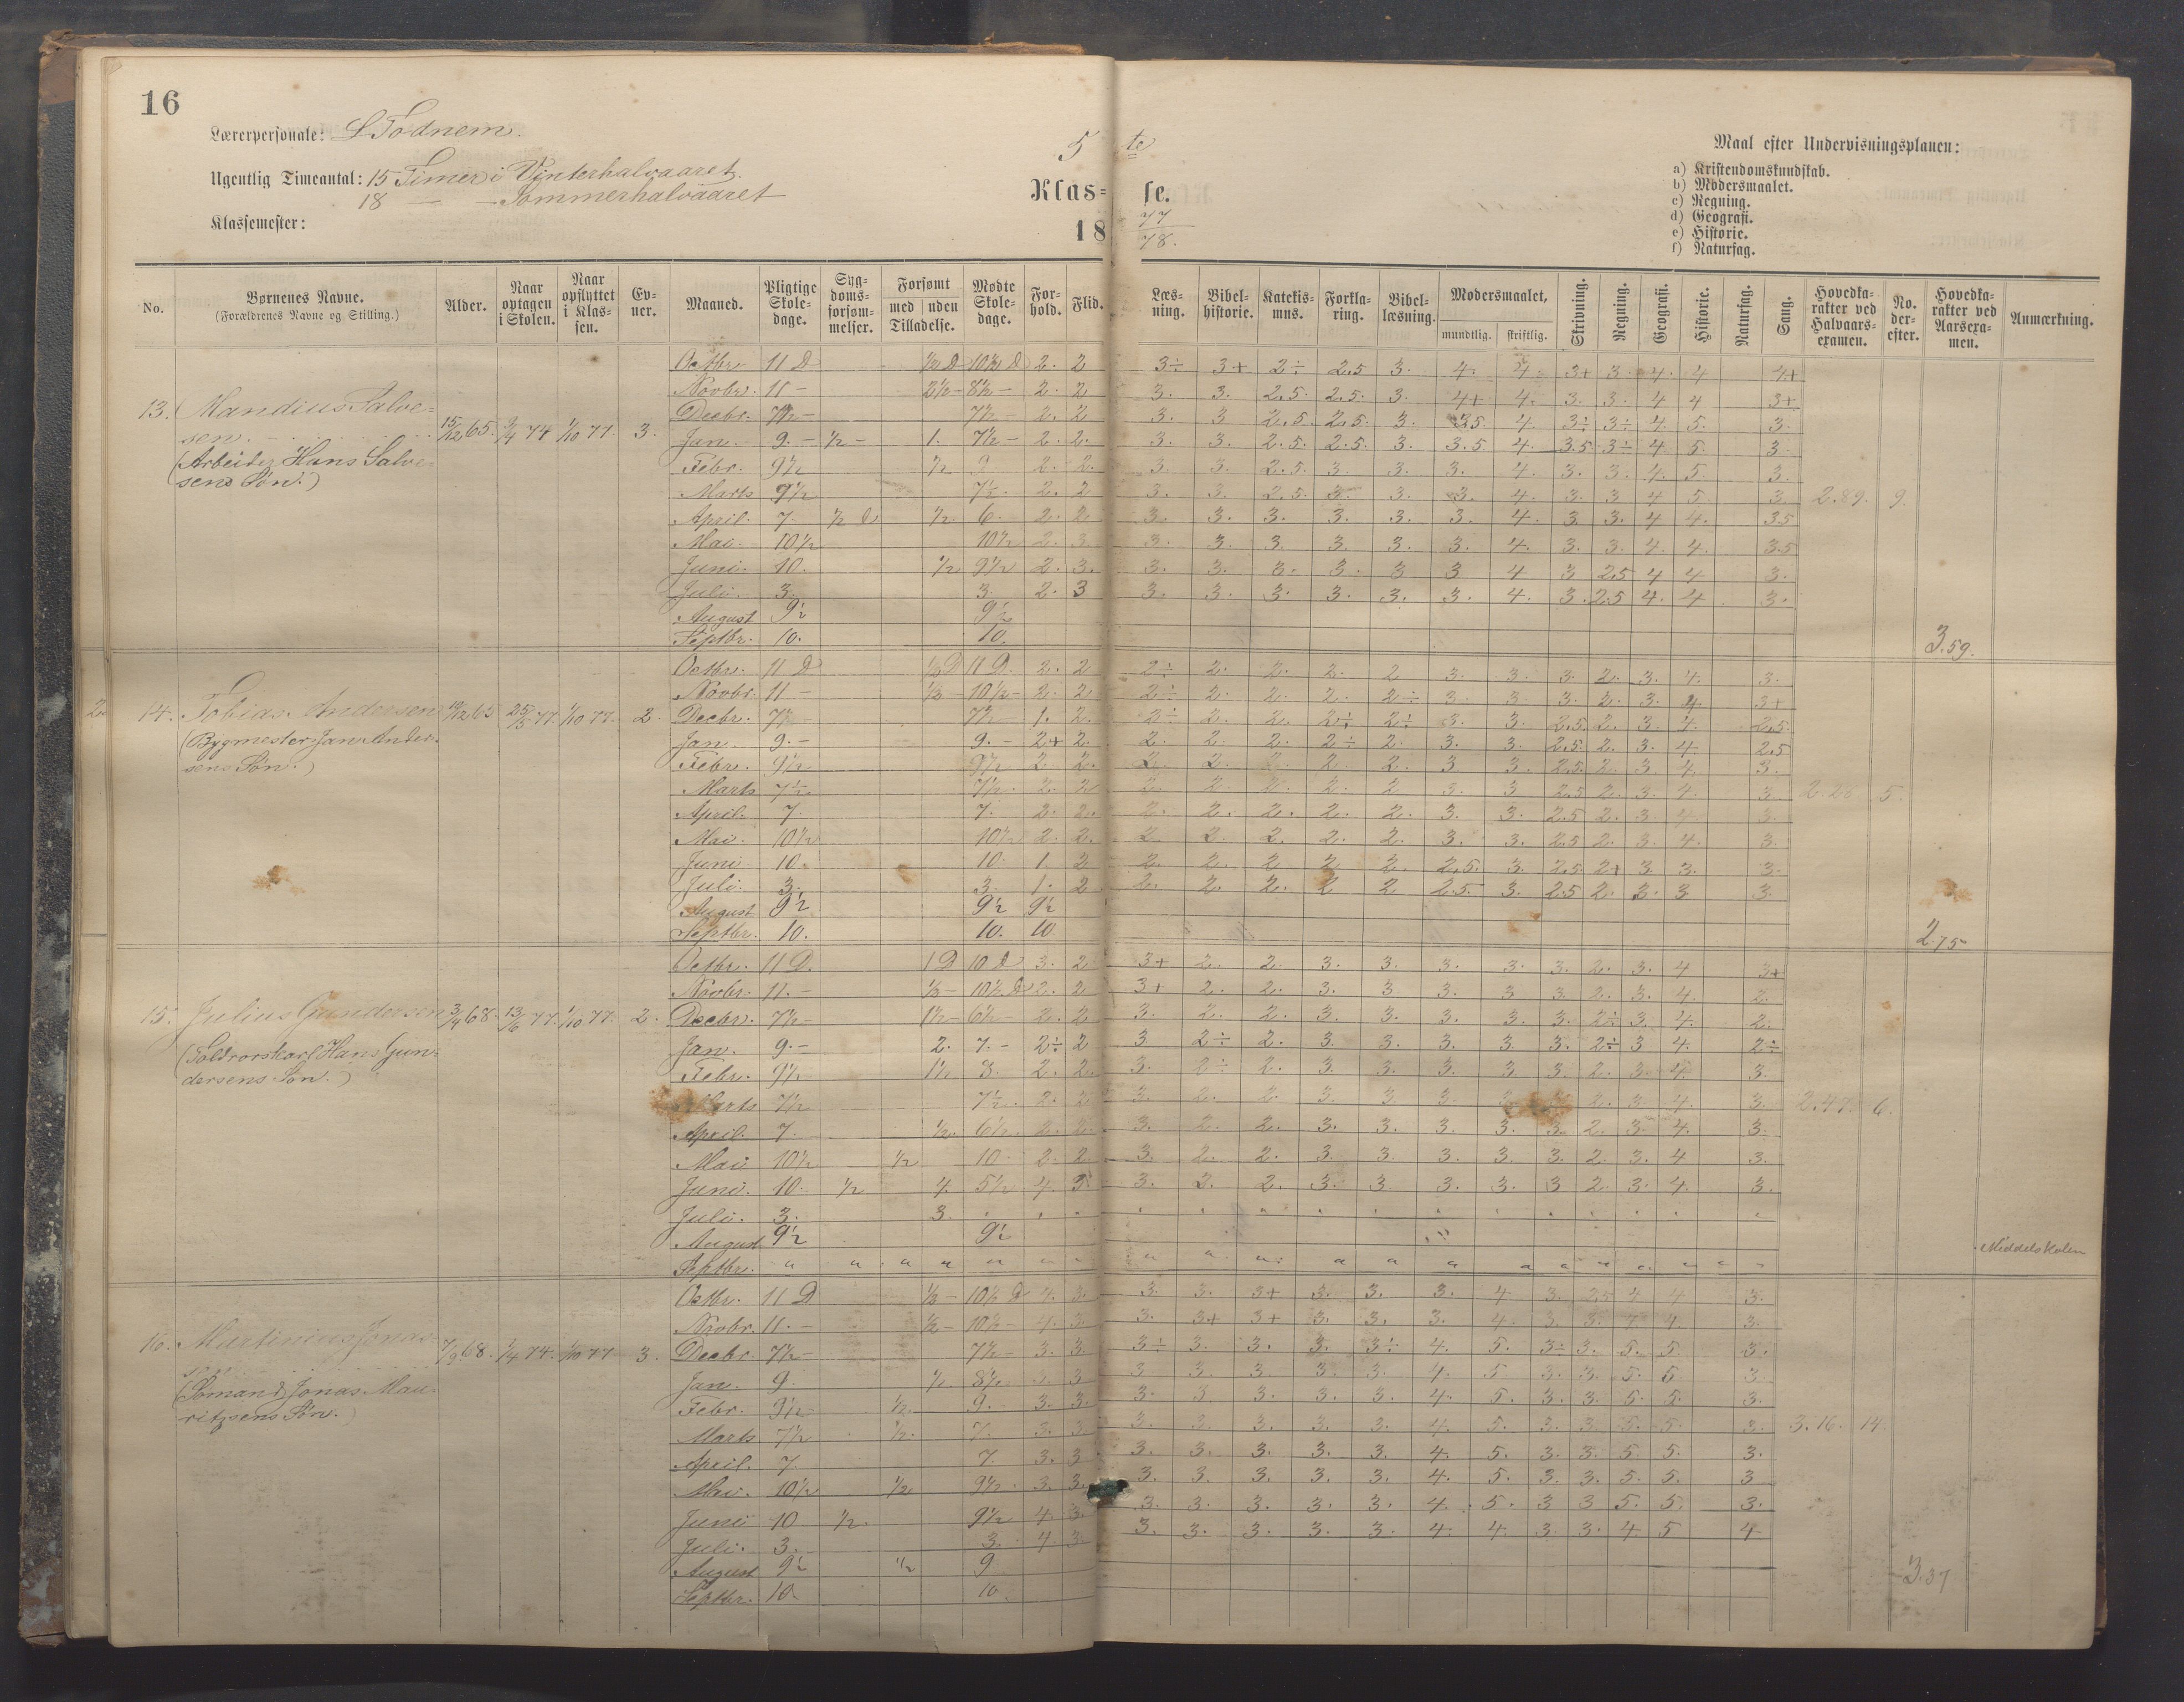 16
Lærerpersonale: L Tødnem.
Ugentlig Timeantal: 15 Timer i Vinterhalvaaret.
18 — - Sommerhalvaaret
Klassemester:
5te
Klasse.
18 77/78.
Maal efter Undervisningsplanen:
a) Kristendomskundskab.
b) Modersmaalet.
c) Regning.
d) Geografi.
e) Historie.
f) Naturfag.
No. Børnenes Navne. (Forældrenes Navne og Stilling.) Alder. Naar optagen i Skolen. Naar opflyttet i Klassen. Evner. Maaned. Pligtige Skoledage. Sygdomsforsømmelser. Forsømt med uden Tilladelse. Mødte Skoledage. Forhold. Flid. Læsning. Bibelhistorie. Katekismus. Forklaring. Bibellæsning. Modersmaalet, mundtlig. skriftlig. Skrivning. Regning. Geografi. Historie. Naturfag. Sang. Hovedkarakter ved Halvaarsexamen. No. derefter. Hovedkarakter ved Aarsexamen. Anmærkning.
Octbr. 11 D ½ D 10½ D 2. 2 3÷ 3+ 2÷ 2.5 3. 4. 4. 3+ 3. 4. 4 4+
Novbr. 11 - 2½ - 8½ - 2. 2 3. 3. 2.5. 2.5. 3. 4+ 4. 3. 3. 4 4 3+
13. Mandius Salvesen. 15/12 65. 74 1/10 77. 3.
Decbr. 7½ - 7½ - 2. 2 3. 3 2.5. 2.5. 3. 3.5 4. 3÷ 3÷ 4 5. 3.
Jan. 9. - ½ - 1. 7½ - 2. 2. 3. 3. 2.5. 2.5. 3. 3.5 4. 3.5 3÷ 4 5. 3
(Arbeider Hans Salvesens Søn.)
Febr. 9½ ½ 9 2. 2. 3. 3. 2.5. 3. 3. 3. 4. 3. 3. 4. 5. 3.
Marts 7½ 7½. 2. 2 3. 3. 2.5. 3. 3. 3. 4. 3. 3 4 5. 3. 2.89. 9.
April. 7. ½ d ½. 6. 2. 2 3. 3. 3. 3. 3. 3. 4. 3. 3. 4 4. 3.5
Mai. 10½ 10½ 2. 3 3. 3. 3. 3. 3. 3. 4. 3. 3. 4. 4. 3.5
Juni. 10. ½ 9½ 2. 3. 3. 3. 3. 3. 3 3 4 3 2.5 4 4 3.
Juli. 3. 3. 2. 3 3. 3. 3. 3. 3. 3. 4. 3. 2.5 4. 4 3.
August 9½ 9½
Septbr. 10. 10. 3.59.
Octbr. 11 D ½ D 11 D. 2. 2 2÷ 2. 2. 2. 2 3. 3. 3. 2. 3. 4. 3.
Novbr. 11 - ½ - 10½ - 2. 2 2÷ 2. 2. 2. 2÷ 3. 3. 3. 2. 3. 4 3+
2 14. Tobias Andersen 19/12 65 25/5 77. 1/10 77. 2.
Decbr. 7½ - 7½ - 1. 2. 2÷ 2. 2. 2÷ 2÷ 3. 3. 2.5. 2. 3. 4. 2.5.
(Bygmester Jan Andersens Søn.)
Jan. 9. - 9. - 2+ 2. 2. 2. 2. 2÷ 2. 3. 3. 2.5. 2. 3. 4. 2.5
Febr. 9½ 9½ 2 2. 2. 2. 2. 2. 2. 3 3. 2.5. 2. 3 4. 3.
Marts 7½. 7½. 2. 2 2. 2. 2. 2. 2 3. 3 2.5 2. 3. 4. 3. 5.
April. 7. 7. 2. 2. 2. 2. 2. 2. 2. 3 3. 2.5 2. 3 4 3.
Mai. 10½ 10½ 2. 2. 2. 2. 2. 2. 2. 3. 3. 2.5 2. 3. 4. 3.
Juni 10. 10. 1. 2 2. 2. 2 2 2. 2.5. 3. 2.5 2+ 3. 3. 3.
Juli. 3. 3. 1. 2 2. 2. 2. 2 2 2.5. 3. 2.5 2. 3. 3 3.
August 9½ 9½ 9½
Septbr. 10. 10. 10 2.75
Octbr. 11 D. 1 D 10 d 3. 2 3+ 2. 2. 3. 3. 3. 3. 3. 2. 3. 4 3+
Novbr. 11. - ½ - 10½ D 2. 2 3+ 2. 2. 3. 3 3. 3 3. 2. 3. 4. 2.
15. Julius Gundersen 68. 13/6 77. 1/10 77. 2.
Decbr. 7½ - 1½ - 6½ - 2. 2 3. 2. 2. 3. 3. 3. 3. 3. 2÷ 3. 4. 2.
(Toldrorskarl Hans Gundersens Søn.)
Jan. 9. - 2. 7. - 2÷ 2 3 2÷ 2. 3. 3. 3. 3. 3. 2÷ 3 4. 2÷
Febr. 9½ 1½ 8. 2. 2. 3. 2÷ 2. 3. 3. 3. 3 3. 2. 3. 4. 3.
Marts 7½ 7½. 2. 2 3. 2. 2. 3. 3 3. 2. 3. 4. 3. 2.47. 6.
April. 7. ½. 6½. 2. 2. 3. 2. 2. 3. 3. 3. 3. 3. 2. 3. 4. 3.
Mai 10½ ½ 10. 2. 2. 3. 2. 2. 3. 3. 3. 3. 3. 2. 3. 4 3.
Juni. 10. ½ 4. 5½ 4. 3. 3. 2. 2. 3. 3 3. 3. 3 2. 3. 4. 3.
Juli. 3. 3.
August 9½ 9½
Septbr. " " " " " " " Middelskolen
Octbr. 11 D ½ - 10½ D 4. 3. 3. 3. 3+ 3. 3. 3. 4 3. 2.5 4 4 3.
Novbr. 11. - ½ - 10½ - 4. 3. 3. 3+ 3+ 3. 3. 3. 4. 3. 3. 4 4. 3.
16. Martinius Jonassen 68. 74. 1/10 77 3.
Decbr. 7½ - 7½ - 3. 3. 3÷ 3. 3. 3. 3÷ 4. 5. 3÷ 3. 5. 5. 3.
Jan. 9. ½ 8½ 3 3 3 3. 3. 3. 3. 4. 5 3. 3. 5. 5. 3.
(Sømand Jonas Mauritzsens Søn.)
Febr. 9½ ½. 9. 3. 3. 3. 3. 3. 3. 3. 4. 5. 3. 3. 5. 5. 3.
Marts 7½ ½. 7. 3. 3 3. 3. 3. 3. 3. 4. 5. 3. 3. 5. 5. 3. 3.16. 14.
April. 7. 7. 3. 3 3. 3. 3. 3. 3. 4. 5. 3. 3. 5. 5. 3.
Mai. 10½ ½ 9½. 3. 3. 3. 3. 3. 3. 3. 4. 5. 3. 3. 5. 5. 3
Juni 10 ½. 9½ 4. 3. 3. 3. 3. 3. 3. 4. 5. 3 3 5. 5. 3.
Juli. 3. 3. 4. 3. 3. 3. 3. 3. 3. 4. 4. 3. 3. 4. 5 4
August 9½ ½ 9
Septbr. 10. 10. 3.37